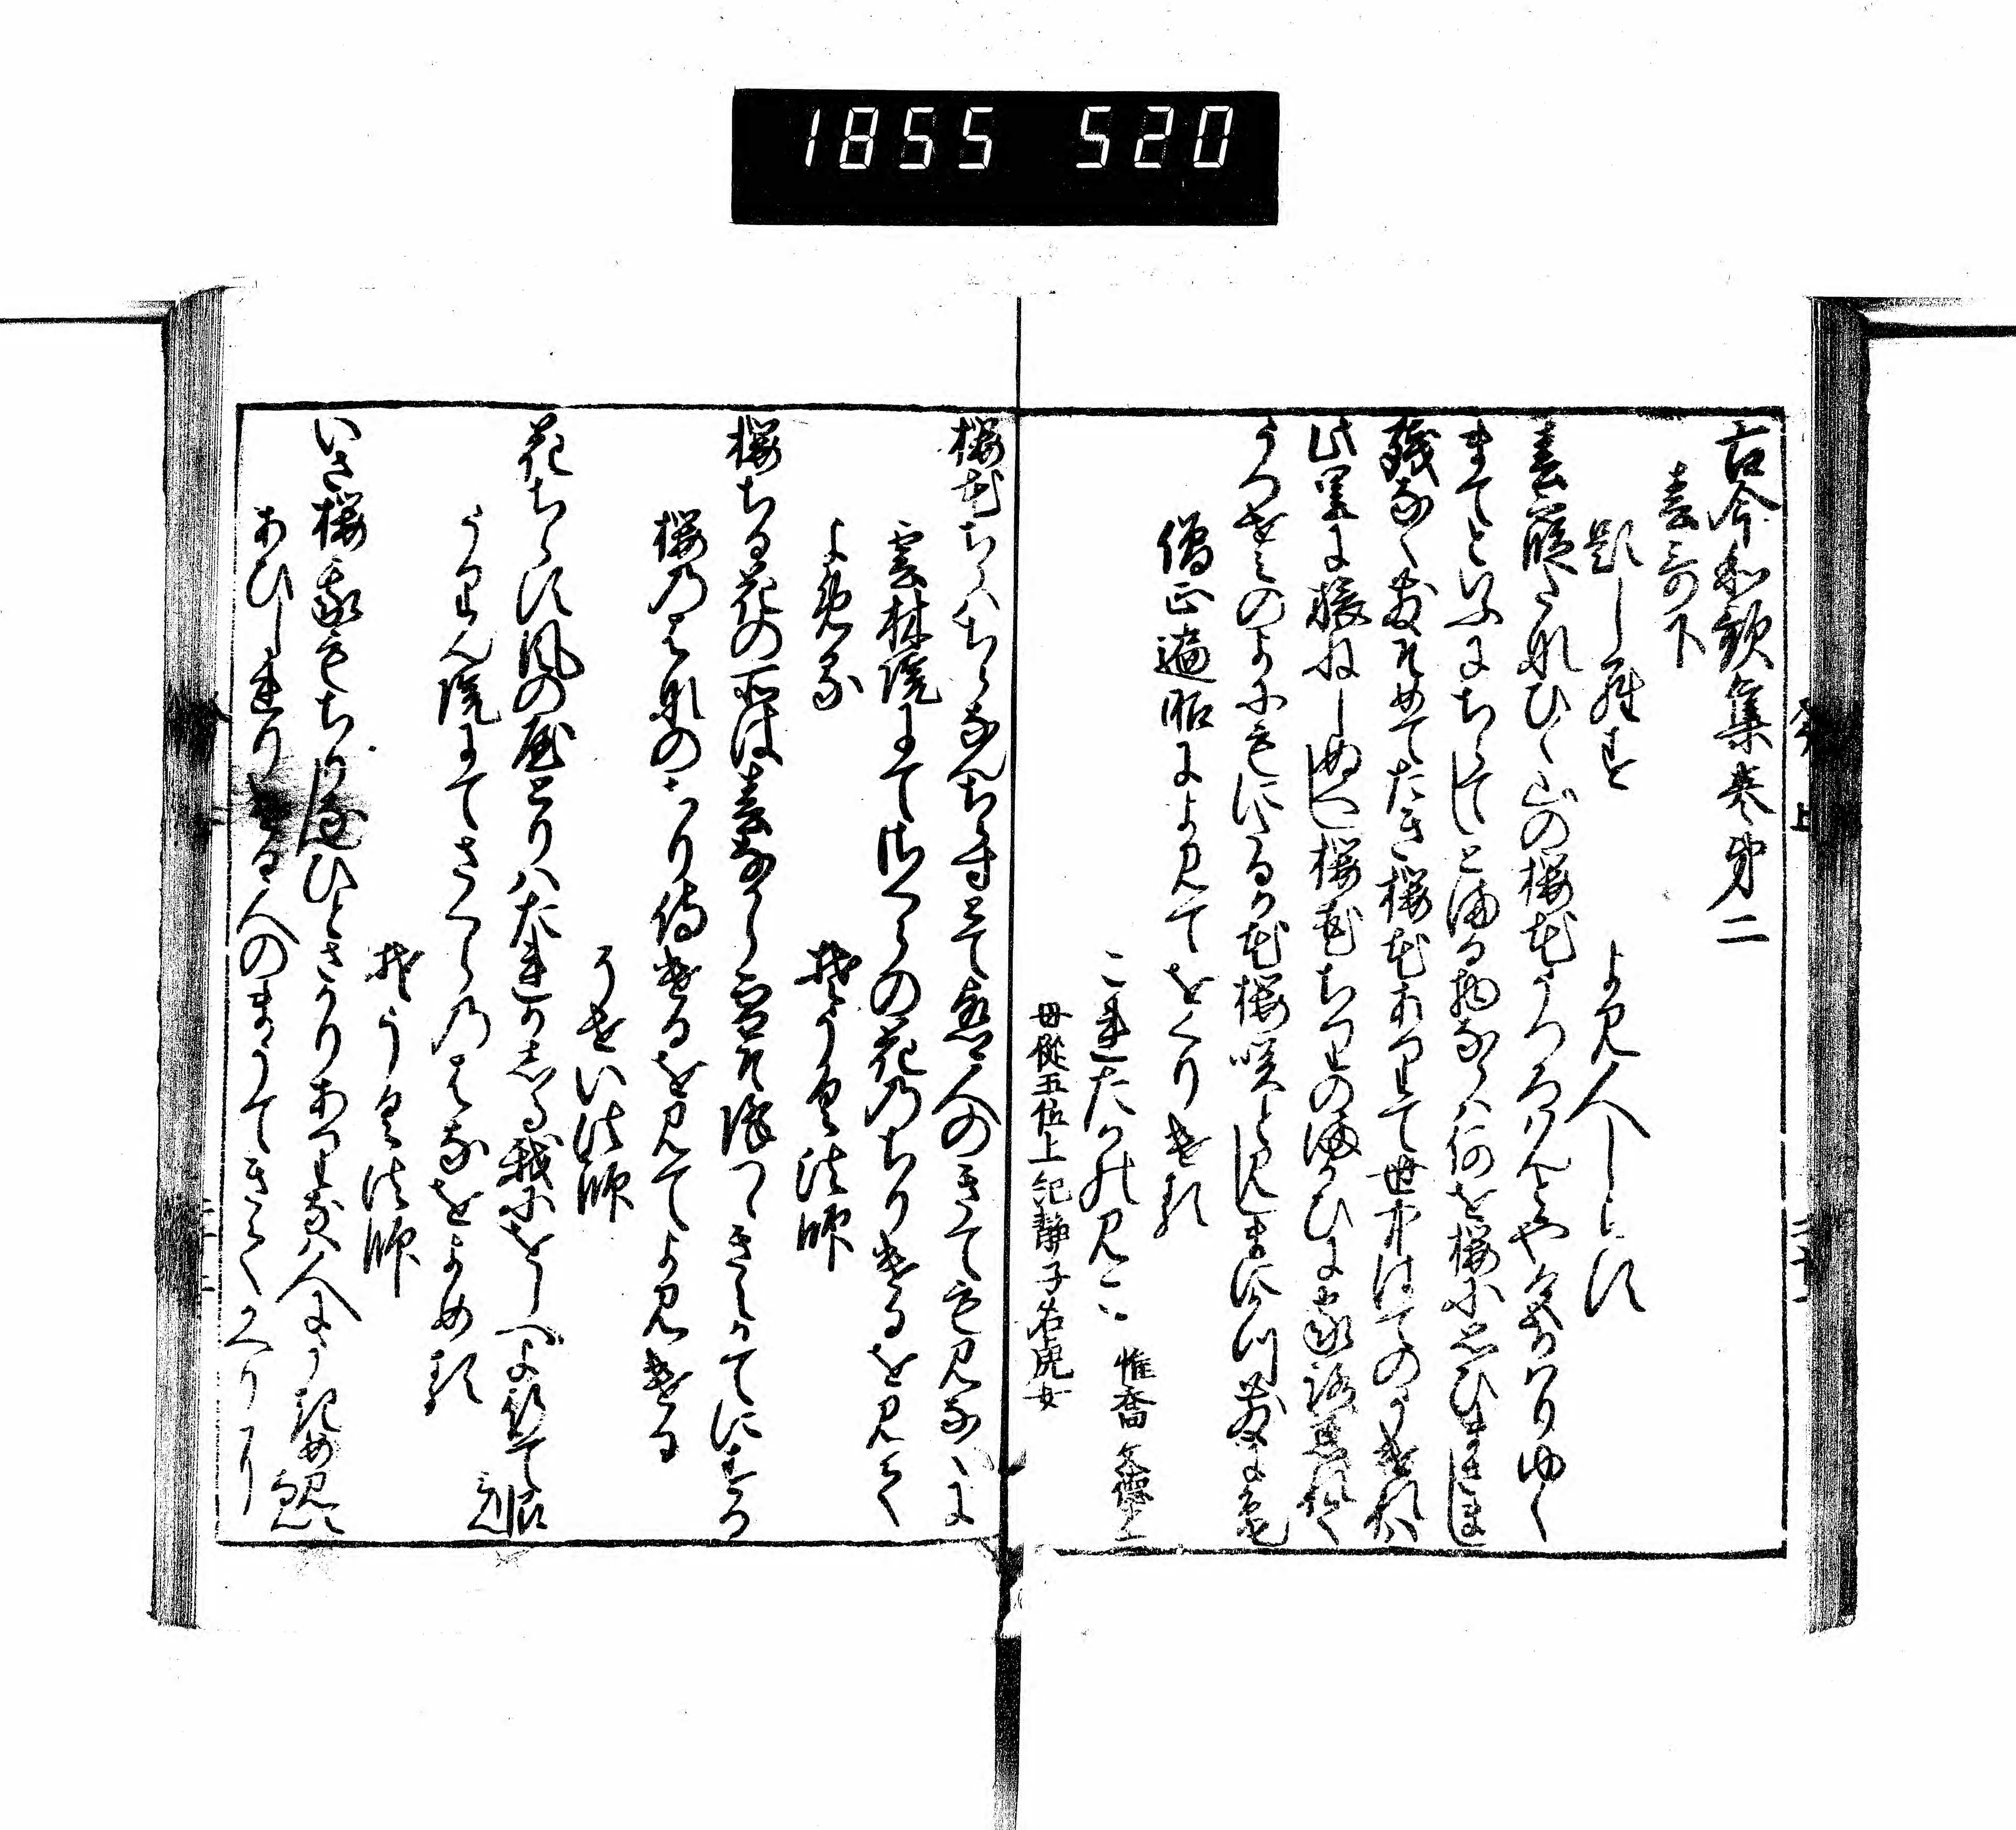 1855 520
古今和歌集巻第二
春哥下
題しらす
よみ人しらす
春霞たなひく山の桜花うつろはんとや色かはりゆく
まてといふにちらてしとまる物ならは何を桜に思ひまさまし
残なくちるそめてたき桜花ありて世中はてのうけれは
此里に旅ねしぬへし桜花ちりのまかひに家路忘れて
うつせみのよにもにたるか花桜咲とみしまにかつ散にけり
僧正遍昭によみてをくりける
これたかのみこ
惟喬 文徳
母従五位上紀静子名虎女
桜花ちらはちらなんちらすとて故郷人のきても見なくに
雲林院にてさくらの花のちりけるを見て
よめる
そうく法師
桜ちる花の所は春なから雪そ降つゝきえかてにする
桜のはなのちり侍けるを見てよみける
そせい法師
花ちらす風の屋とりはたれかしる我にをしへよ行て恨みん
うりん院にてさくらのはなをよめる
そうく法師
いさ桜我もちりなんひとさかりありなは人にうきめ見えなん
あひしれりける人のまうてきてかへりに